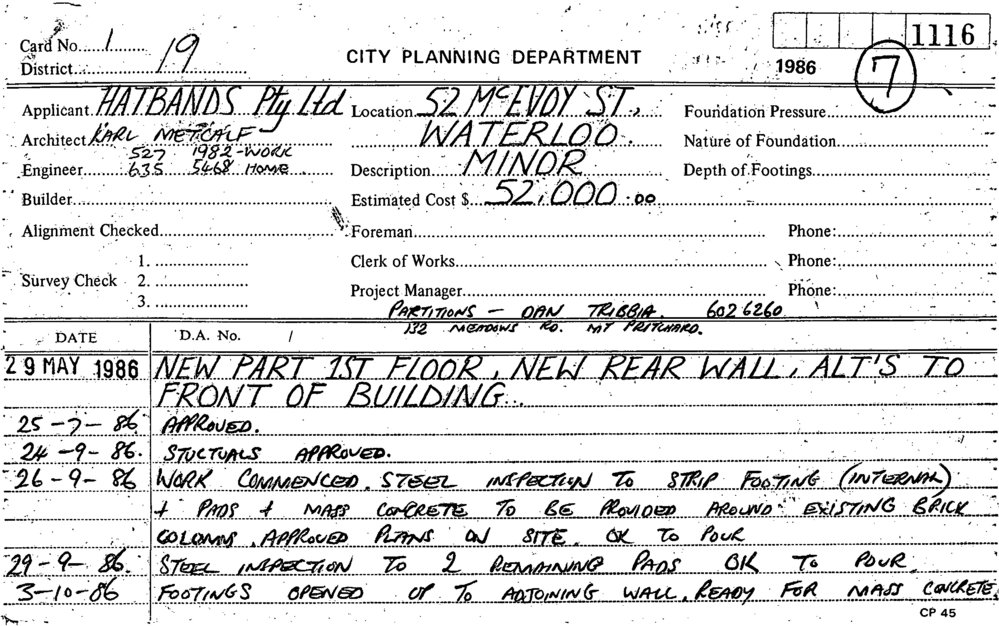 Card No. 1
1116
District 19
CITY PLANNING DEPARTMENT
1986
7
Applicant HATBANDS Pty Ltd Location 52 McEVOY ST, Foundation Pressure
Architect KARL METCALF WATERLOO. Nature of Foundation
527 1982-WORK
Engineer 635 5468 HOME Description MINOR Depth of Footings
Builder Estimated Cost $ 52,000.00
Alignment Checked Foreman Phone:
1. Clerk of Works Phone:
Survey Check 2.
3. Project Manager Phone:
PARTITIONS - DAN TRIBBIA. 602 6260
132 MEADOWS RD. MT PRITCHARD.
DATE D.A. No. /
29 MAY 1986 NEW PART 1ST FLOOR, NEW REAR WALL, ALT'S TO
FRONT OF BUILDING.
25-7-86 APPROVED.
24-9-86. STUCTUALS APPROVED.
26-9-86 WORK COMMENCED. STEEL INSPECTION TO STRIP FOOTING (INTERNAL)
+ PADS + MASS CONCRETE TO BE PROVIDED AROUND EXISTING BRICK
COLOMNS. APPROVED PLANS ON SITE. OK TO POUR
29-9-86. STEEL INSPECTION TO 2 REMAINING PADS OK TO POUR.
3-10-86 FOOTINGS OPENED UP TO ADJOINING WALL. READY FOR MASS CONCRETE.
CP 45